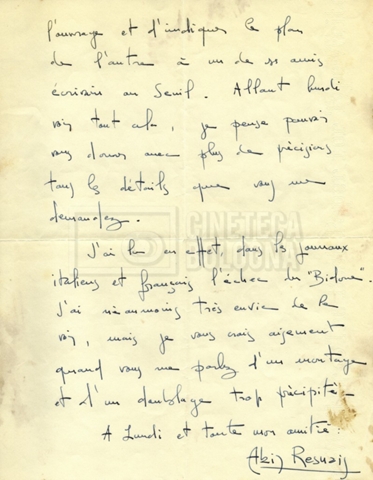 l'ouvrage et d'indiquer le plan
de l'autre à un de ses amis
écrivain au Seuil. Allant lundi
voir tout cela, je pense pouvoir
vous donner avec plus de précisions
tous les détails que vous me
demandez.
J'ai lu en effet, dans les journaux
italiens et français l'échec du "Bidone".
J'ai néanmoins très envie de le
voir, mais je vous crois aisément
quand vous me parlez d'un montage
et d'un doublage trop précipité.
A Lundi et toute mon amitié.
Alain Resnais
CINETECA
BOLOGNA